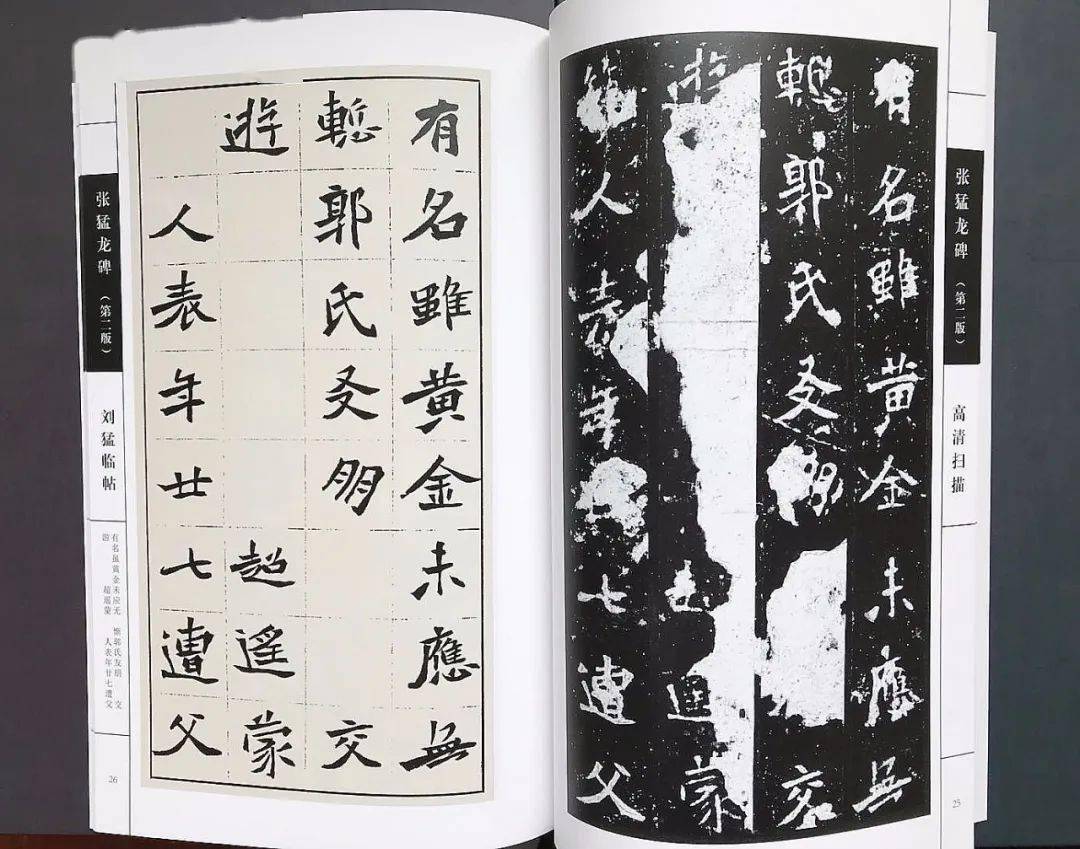 张猛龙碑（第二版）
高清扫描
25
有名雖黄金未應無
慙郭氏友朋交
遊超遥蒙
人表年廿七遭父
有名雖黄金未應無
慙郭氏友朋交
遊超遥蒙
人表年廿七遭父
张猛龙碑（第二版）
刘猛临帖
有名虽黄金未应无 惭郭氏友朋 交
游 超遥蒙 人表年廿七遭父
26